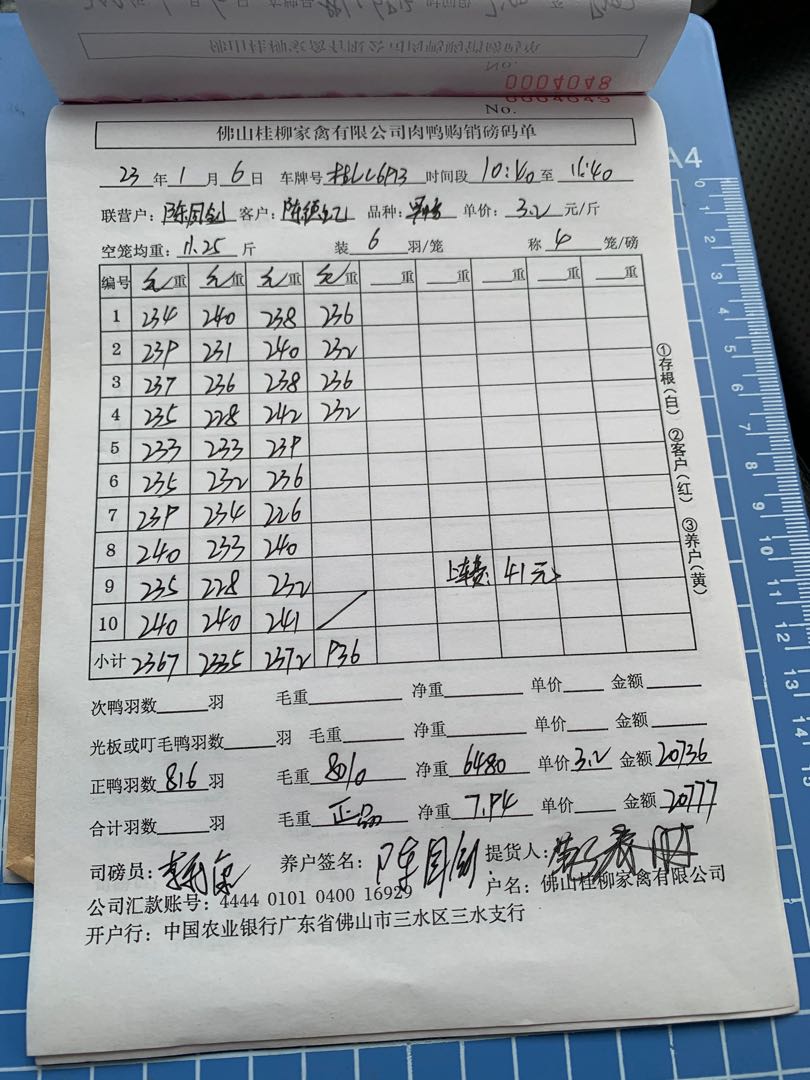 No.
0004048
0004049
No.
佛山桂柳家禽有限公司肉鸭购销磅码单
23 年 1 月 6 日 车牌号 时间段 10:40 至 11:40
联营户: 陈国剑 客户: 品种: 单价: 3.2 元/斤
空笼均重: 11.25 斤 装 6 羽/笼 称 4 笼/磅
编号 毛重 毛重 毛重 毛重 重 重 重 重 重
1 234 240 238 236
2 239 231 240 232
3 237 236 238 236
4 235 228 242 232
5 233 233 239
6 235 232 236
7 239 234 226
8 240 233 240
9 235 228 232 上车费: 41元
10 240 240 241
小计 2367 2335 2372 936
次鸭羽数 羽 毛重 净重 单价 金额
光板或叮毛鸭羽数 羽 毛重 净重 单价 金额
正鸭羽数 816 羽 毛重 8010 净重 6480 单价 3.2 金额 20736
合计羽数 羽 毛重 正品 净重 7.94 单价 金额 20777
司磅员: 养户签名: 陈国剑 提货人:
公司汇款账号: 4444 0101 0400 16929 户名: 佛山桂柳家禽有限公司
开户行: 中国农业银行广东省佛山市三水区三水支行
①存根(白) ②客户(红) ③养户(黄)
A4
0
1
2
3
4
5
6
7
8
9
10
11
12
13
14
15